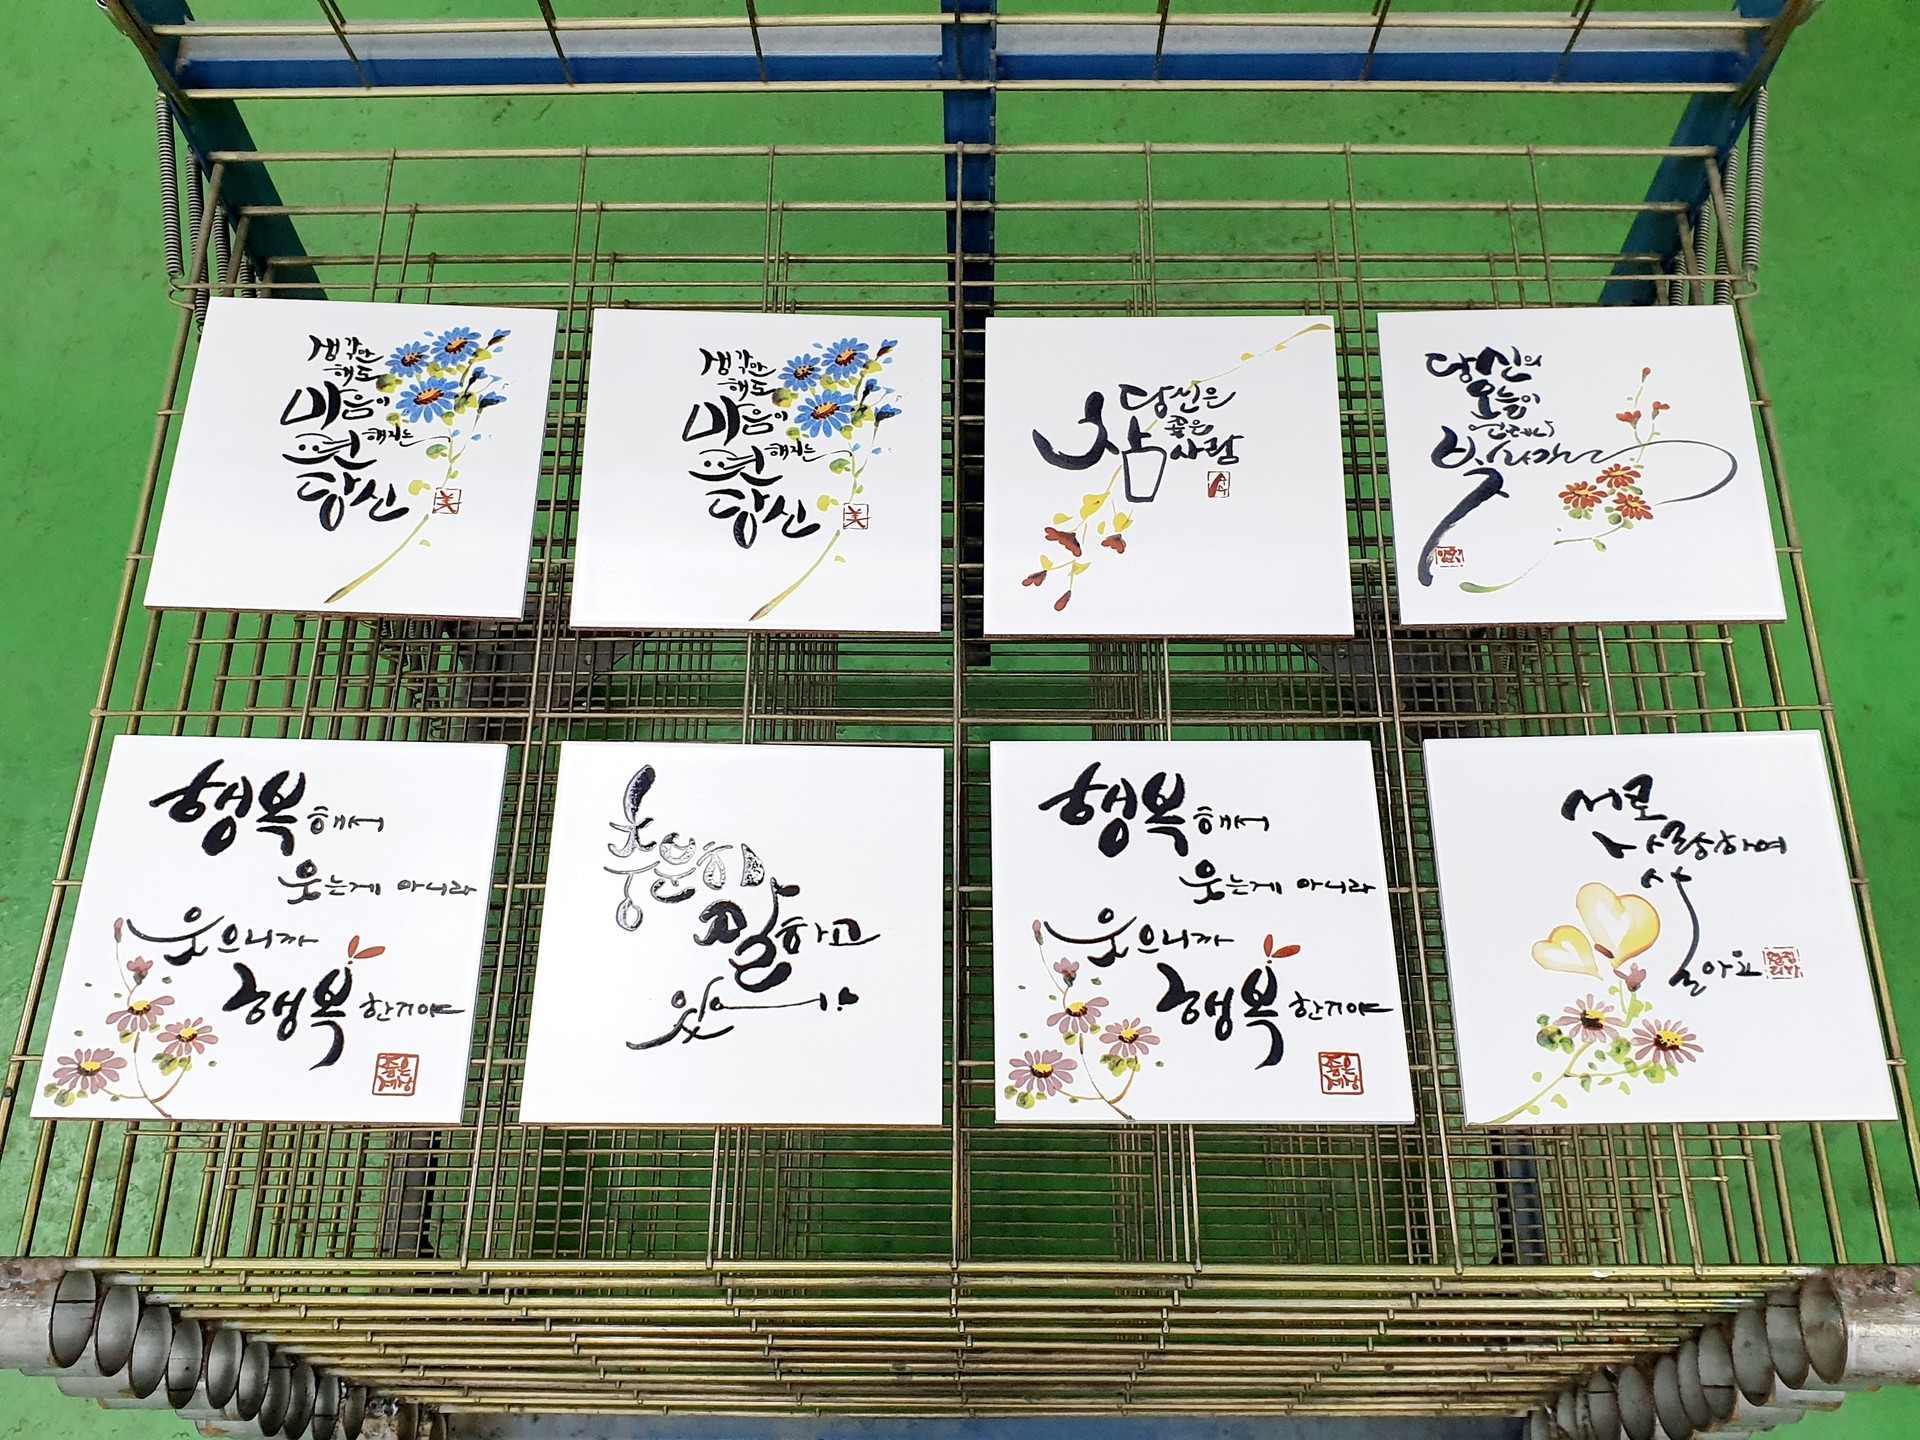 생각만
해도
마음이
편해지는
당신
美
생각만
해도
마음이
편해지는
당신
美
당신은
참 좋은
사람
당신의
오늘이
빛나기를
행복해서
웃는게 아니라
웃으니까
행복한거야
좋은
세상
충분히
잘하고
있어!
행복해서
웃는게 아니라
웃으니까
행복한거야
좋은
세상
서로
사랑하며
살아요